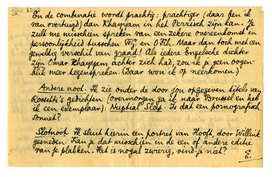 En de combinatie wordt prachtig, prachtiger (daar ben ik
van overtuigd) dan Khayyam in het Perzisch zijn kan. Je
zult me misschien spreken van een zekere overeenkomst in
persoonlijkheid tusschen Fitz. en O.Kh. Maar dan toch met een
geweldig verschil van graad! Als iedere Engelsche dichter
zijn Omar Khayyam achter zich had, zou ik je geen oogen-
blik meer tegenspreken. (Daar won ik op neerkomen.)
Andere noot. Ik zie onder de door jou opgegeven titels van
Rossetti's gedichten (overmorgen ga ik naar Brussel en heb
ik een exemplaar): Nuptial Sleep. Is dat een pornografisch
sonnet?
Slotnoot. Ik sluit hierin een portret van Hooft door Willink
gesneden. Kan je dat misschien in de een of andere editie
van je plakken. Het is nogal zwierig, vind je niet?